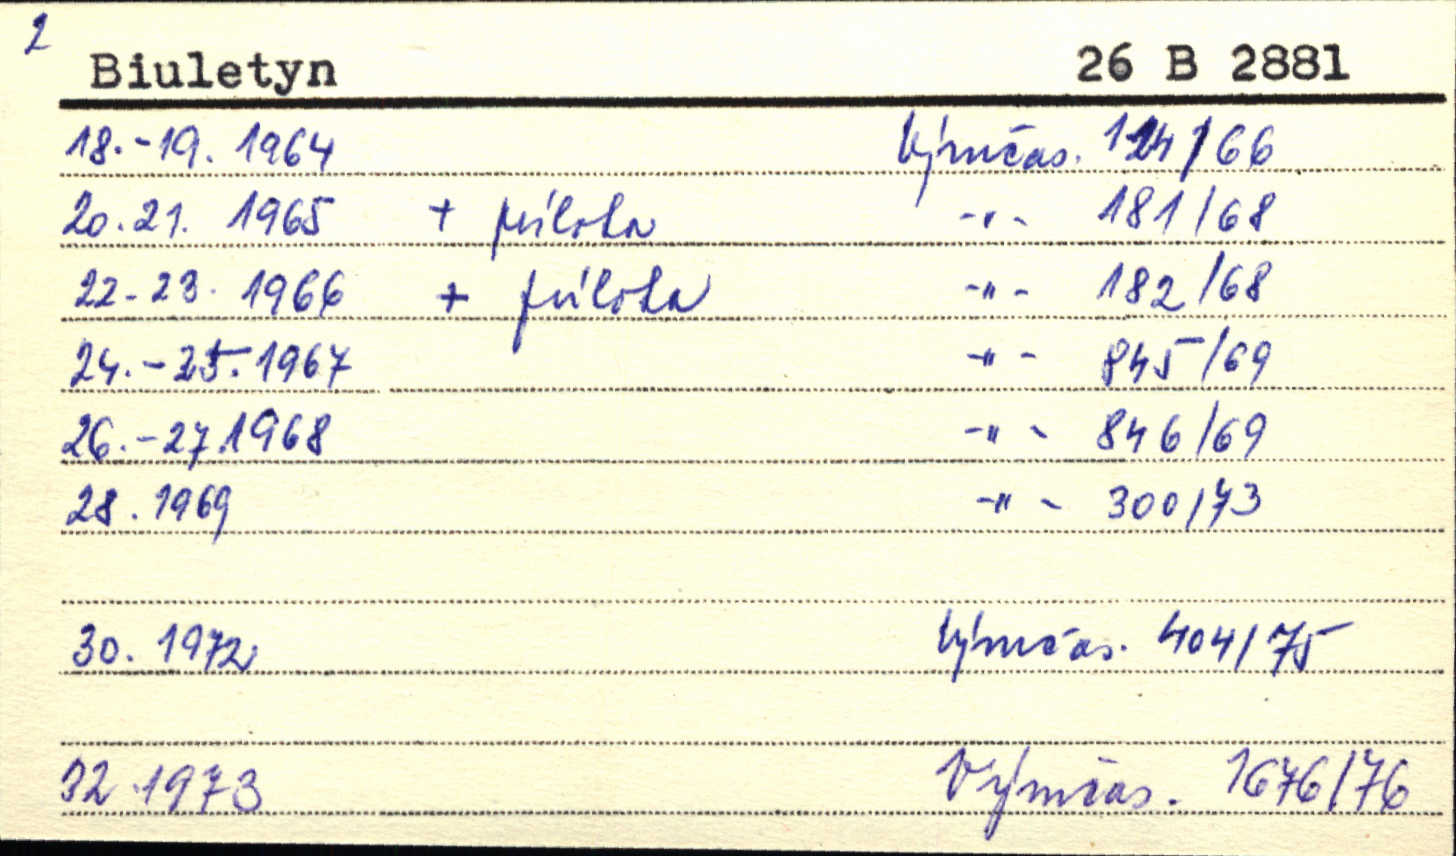 2
Biuletyn 26 B 2881
18.-19. 1964 Výměčas. 124/66
20.21. 1965 + příloha -"- 181/68
22-23. 1966 + příloha -"- 182/68
24.-25. 1967 -"- 845/69
26.-27. 1968 -"- 846/69
28. 1969 -"- 300/73
30. 1972 Výměčas. 404/75
32. 1973 Výměčas. 1676/76